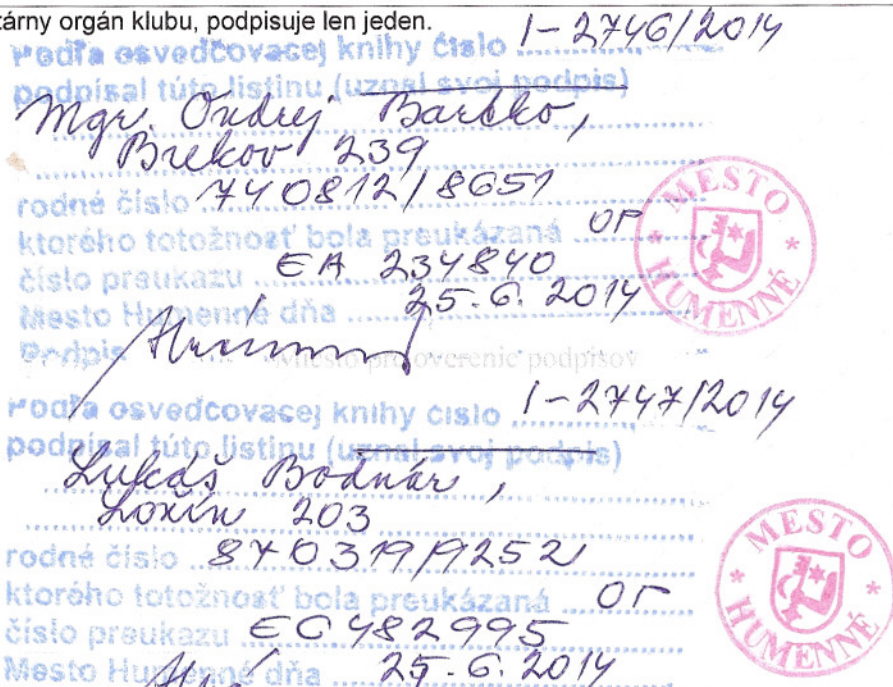 tárny orgán klubu, podpisuje len jeden.
Podľa osvedčovacej knihy číslo 1-2746/2014
podpísal túto listinu (uznal svoj podpis)
Mgr. Ondrej
Brekov 239
rodné číslo 740812/8651
ktorého totožnosť bola preukázaná OP
číslo preukazu EA 234840
Mesto Humenné dňa 25.6.2014
Podpis
Miesto pre overenie podpisov
MESTO HUMENNÉ
Podľa osvedčovacej knihy číslo 1-2747/2014
podpísal túto listinu (uznal svoj podpis)
Lukáš Bodnár,
203
rodné číslo 870319/9252
ktorého totožnosť bola preukázaná OP
číslo preukazu EC 482995
Mesto Humenné dňa 25.6.2014
MESTO HUMENNÉ